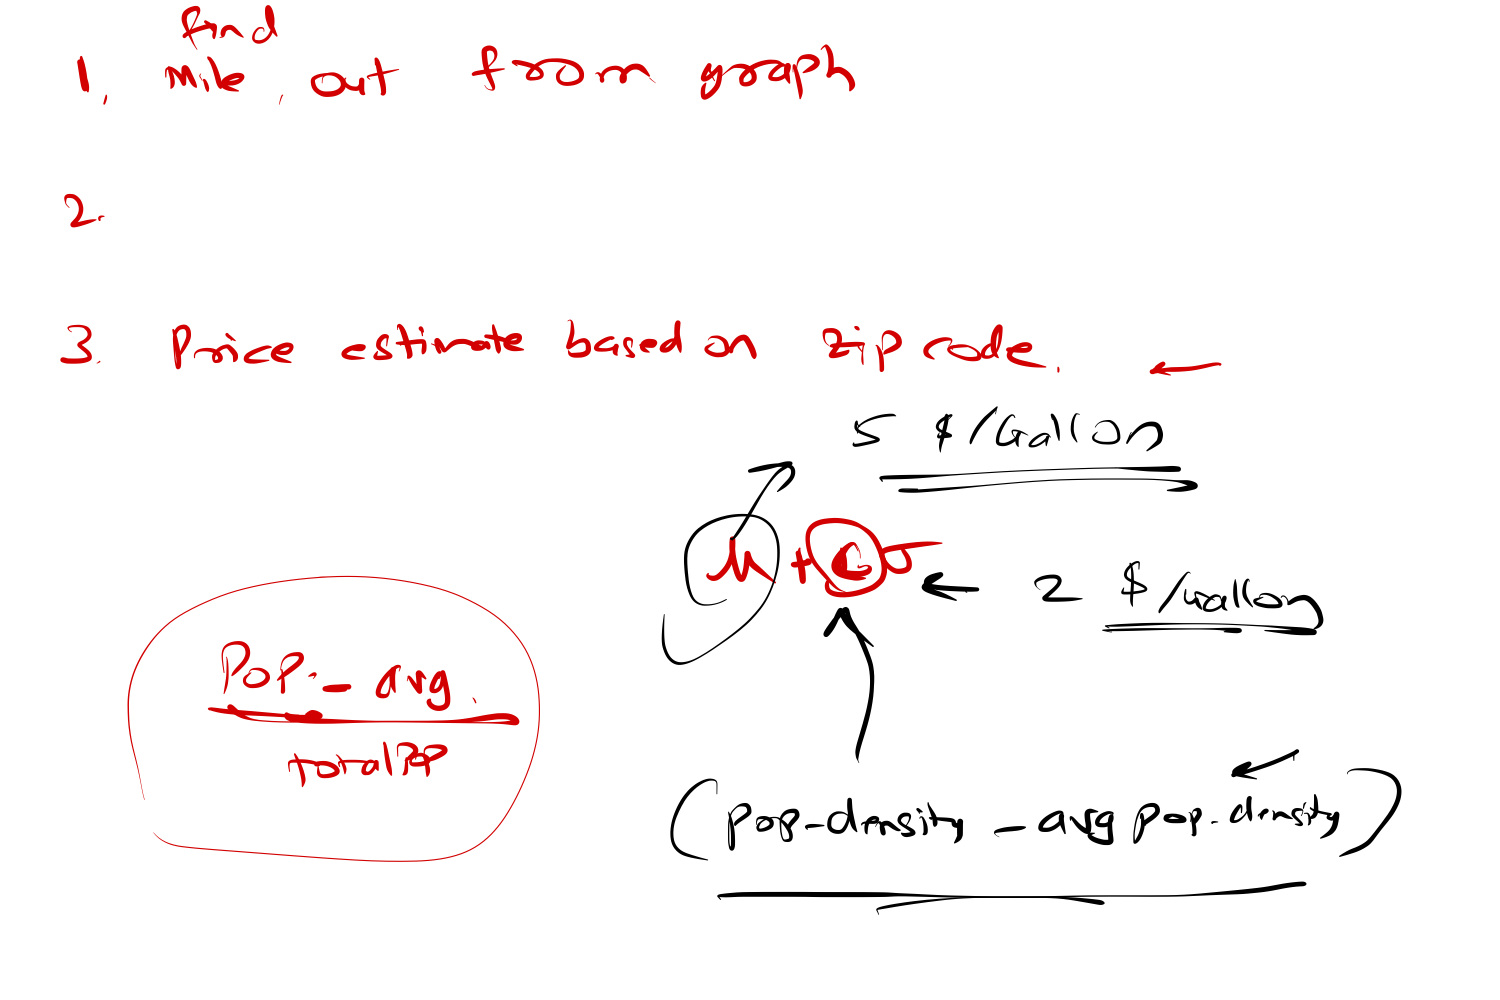 find
1. Mile, out from graph
2.
3. Price estimate based on zip code.
5 $/Gallon
μ + C σ ← 2 $/Gallon
Pop. - avg.
total Pop
(pop-density - avg pop. density)